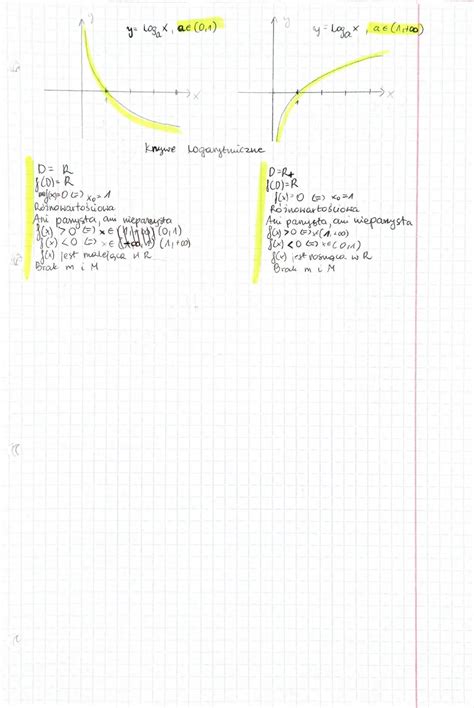 y
y = log_a x, a ∈ (0,1)
1
x
y
y = log_a x, a ∈ (1,+∞)
1
x
Krzywe logarytmiczne
D = R
f(D) = R
f(x) = 0 (=) x₀ = 1
Różnowartościowa
Ani parzysta, ani nieparzysta
f(x) > 0 (=) x ∈ (0,1)
f(x) < 0 (=) x ∈ (1,+∞)
f(x) jest malejąca w R
Brak m i M
D = R+
f(D) = R
f(x) = 0 (=) x₀ = 1
Różnowartościowa
Ani parzysta, ani nieparzysta
f(x) > 0 (=) x (1,+∞)
f(x) < 0 (=) x ∈ (0,1)
f(x) jest rosnąca w R
Brak m i M